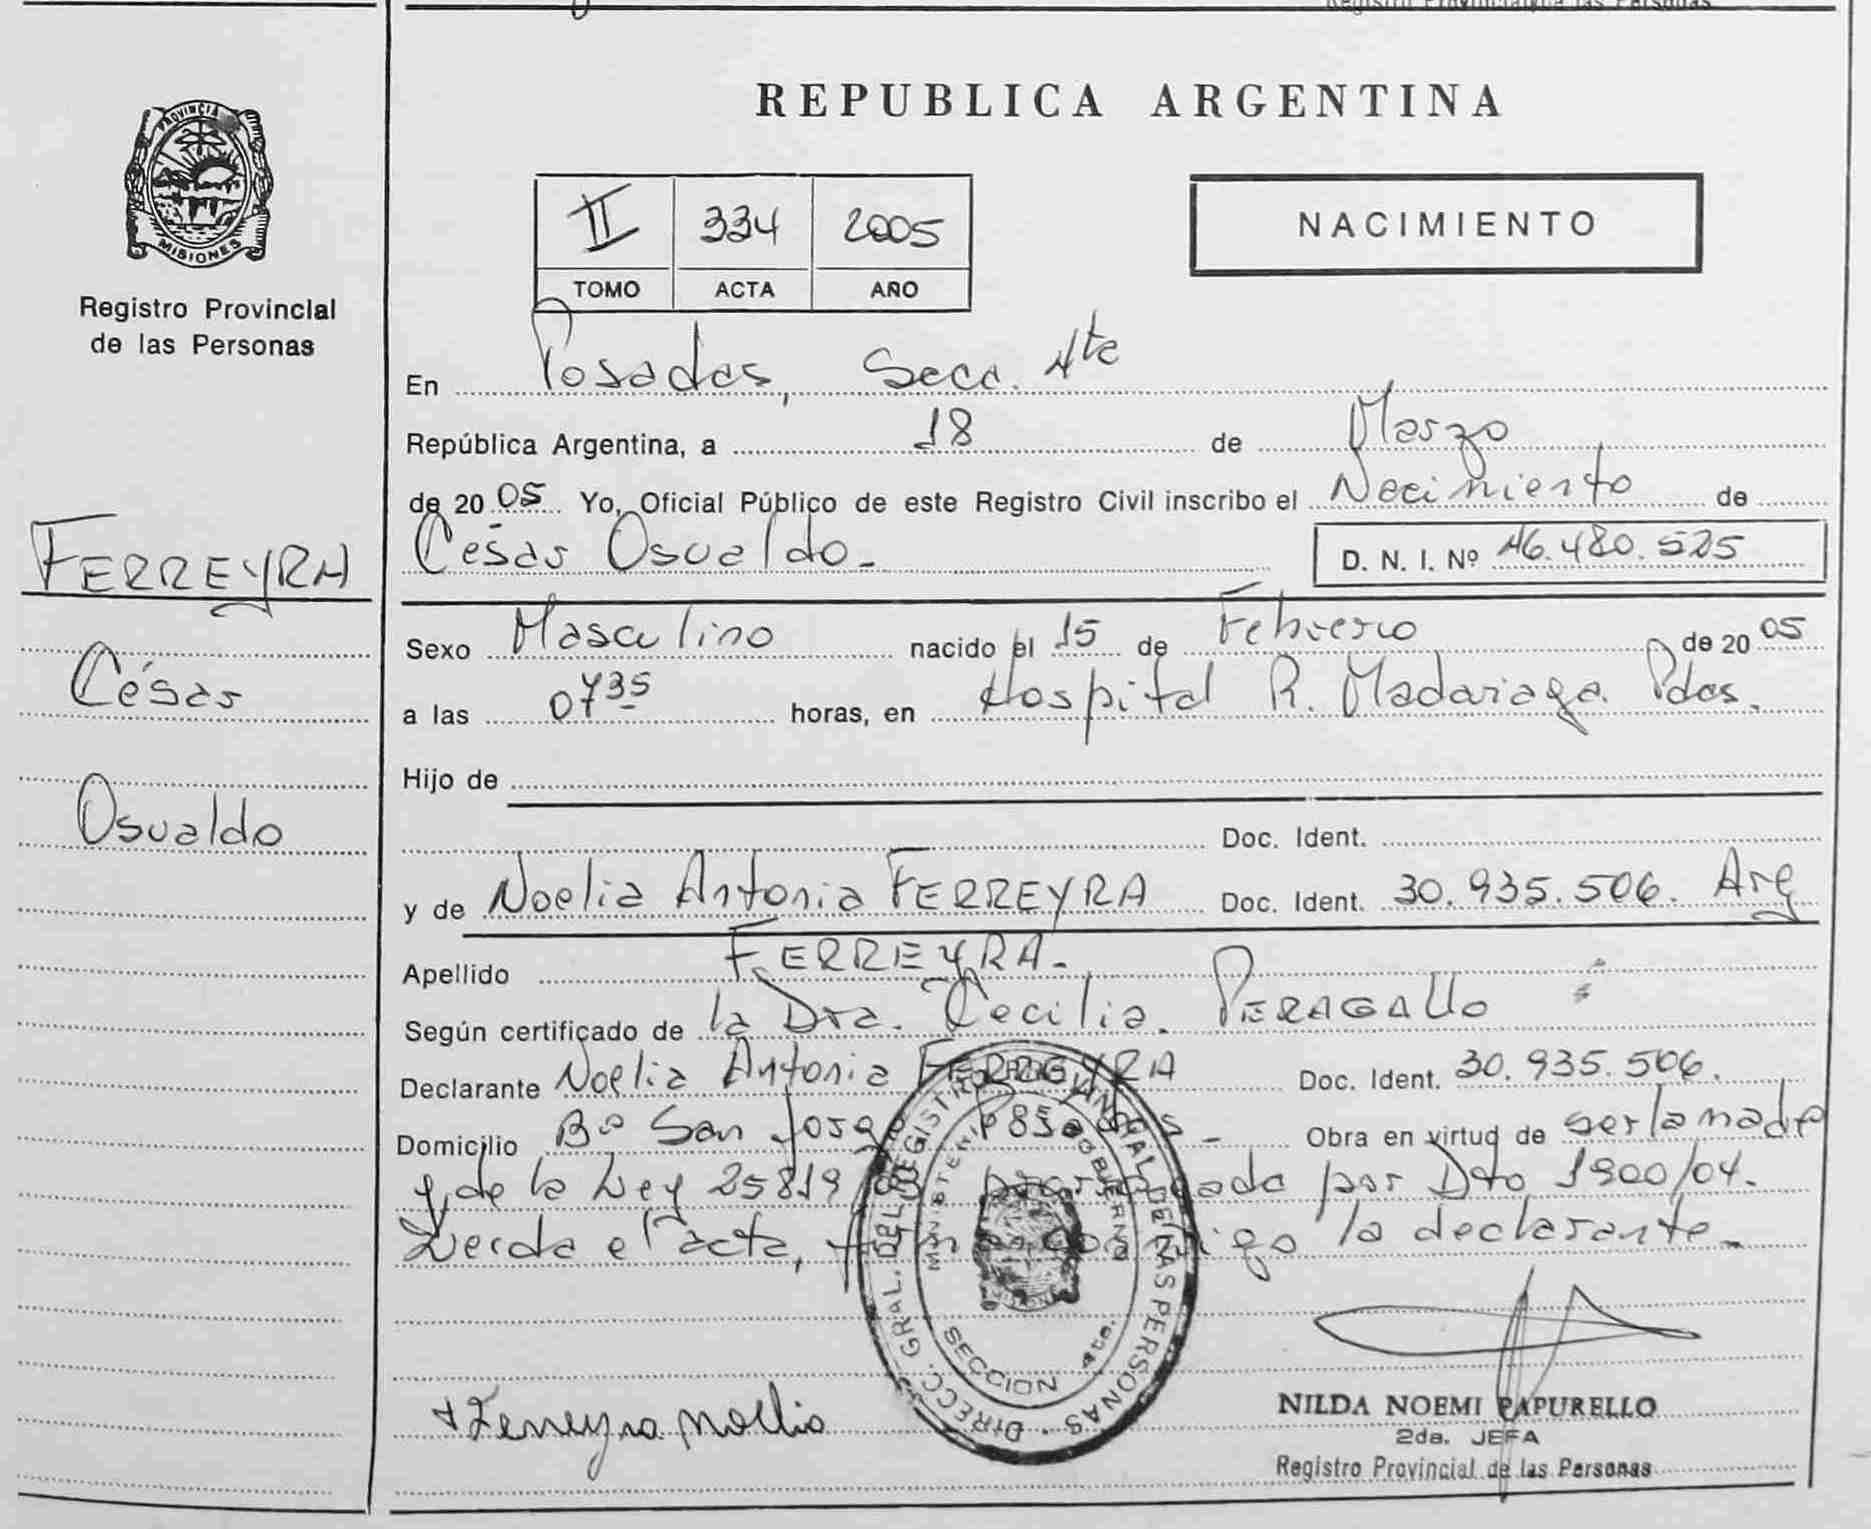 Registro Provincial de las Personas
PROVINCIA
MISIONES
Registro Provincial
de las Personas
FERREYRA
César
Osvaldo
REPUBLICA ARGENTINA
II 334 2005
TOMO ACTA AÑO
NACIMIENTO
En Posadas, Secc. 4ta
República Argentina, a 18 de Marzo
de 20 05 Yo, Oficial Público de este Registro Civil inscribo el Nacimiento de
César Osvaldo.-
D. N. I. Nº 46.480.525
Sexo Masculino nacido el 15 de Febrero de 20 05
a las 0735 horas, en Hospital R. Madariaga Pdas.
Hijo de
Doc. Ident.
y de Noelia Antonia FERREYRA Doc. Ident. 30.935.506. Arg
Apellido FERREYRA.-
Según certificado de la Dra. Cecilia PERAGALLO
Declarante Noelia Antonia FERREYRA Doc. Ident. 30.935.506.
Domicilio Bº San José Posadas - Obra en virtud de ser la madre
y de la Ley 25819 prorrogada por Dto 1900/04.
Leída el acta, firma conmigo la declarante.-
DIRECC. GRAL. DEL REGISTRO PROVINCIAL DE LAS PERSONAS
MINISTERIO GOBIERNO
SECCION 4ta.
+ Ferreyra Noelia
NILDA NOEMI PAPURELLO
2da. JEFA
Registro Provincial de las Personas